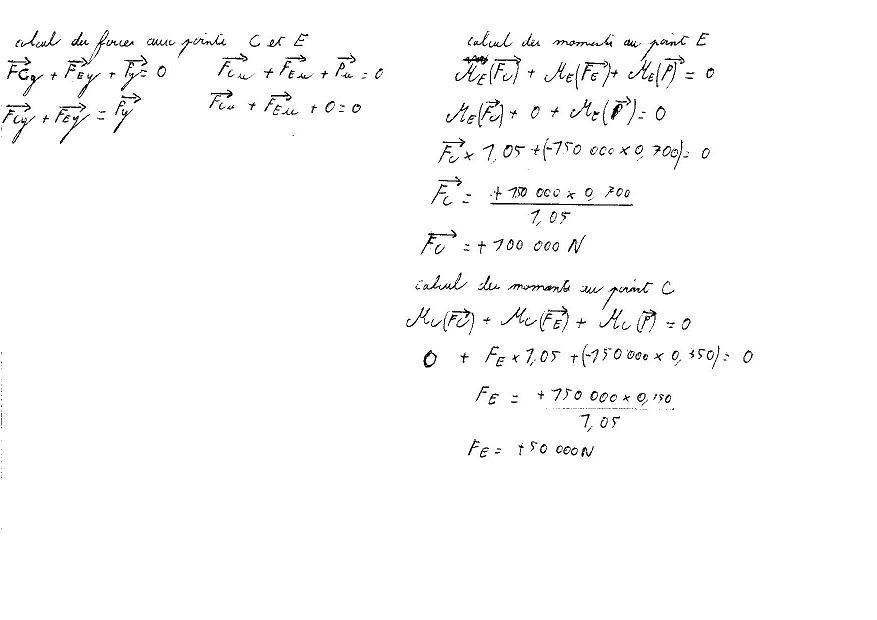 calcul des forces aux points C et E
FCy + FEy + Py = 0
FCy + FEy = Py
FCx + FEx + Px = 0
FCx + FEx + 0 = 0
calcul des moments au point E
ME(FC) + ME(FE) + ME(P) = 0
ME(FC) + 0 + ME(P) = 0
FC x 1,05 + (-150 000 x 0,700) = 0
FC = + 150 000 x 0,700
1,05
FC = + 100 000 N
calcul des moments au point C
MC(FC) + MC(FE) + MC(P) = 0
0 + FE x 1,05 + (-150 000 x 0,350) = 0
FE = + 150 000 x 0,350
1,05
FE = + 50 000 N